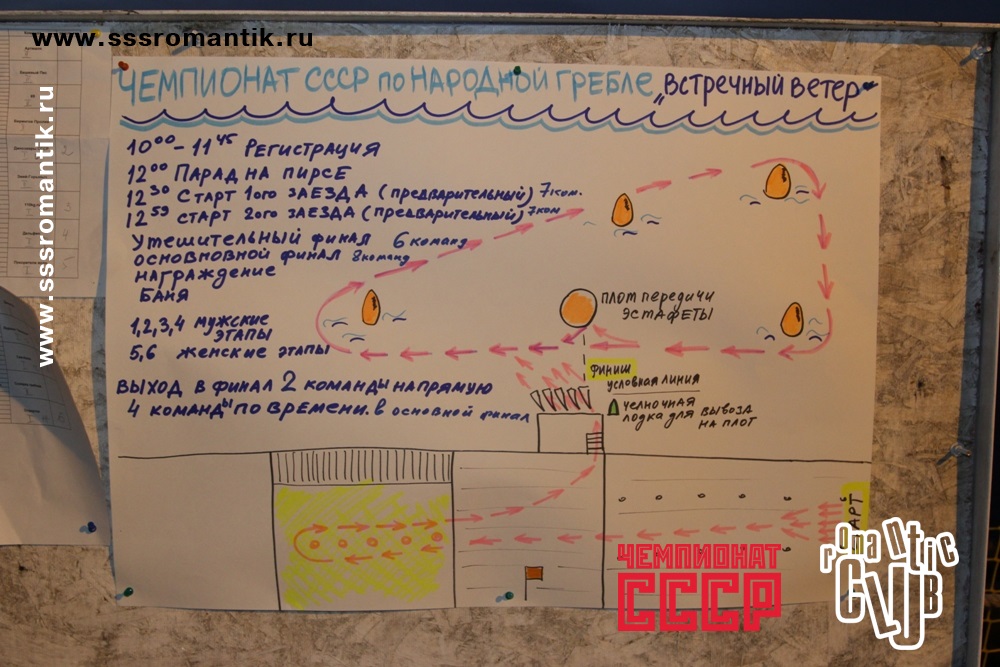 www.sssromantik.ru
ЧЕМПИОНАТ СССР по НАРОДНОЙ ГРЕБЛЕ „ВСТРЕЧНЫЙ ВЕТЕР"
10⁰⁰ - 11⁴⁵ РЕГИСТРАЦИЯ
12⁰⁰ ПАРАД НА ПИРСЕ
12³⁰ СТАРТ 1ого ЗАЕЗДА (предварительный) 7 ком.
12⁵⁹ СТАРТ 2ого ЗАЕЗДА (предварительный) 7 ком
Утешительный финал 6 команд
основновной финал 8 команд
награждение
БАНЯ
1,2,3,4 мужские
этапы
5,6 женские этапы
выход в финал 2 команды напрямую
4 команды по времени. в основной финал
плот передачи
эстафеты
финиш
условная линия
челночная
лодка для вывоза
на плот
www.sssromantik.ru
ЧЕМПИОНАТ
СССР
romantic
CLUB